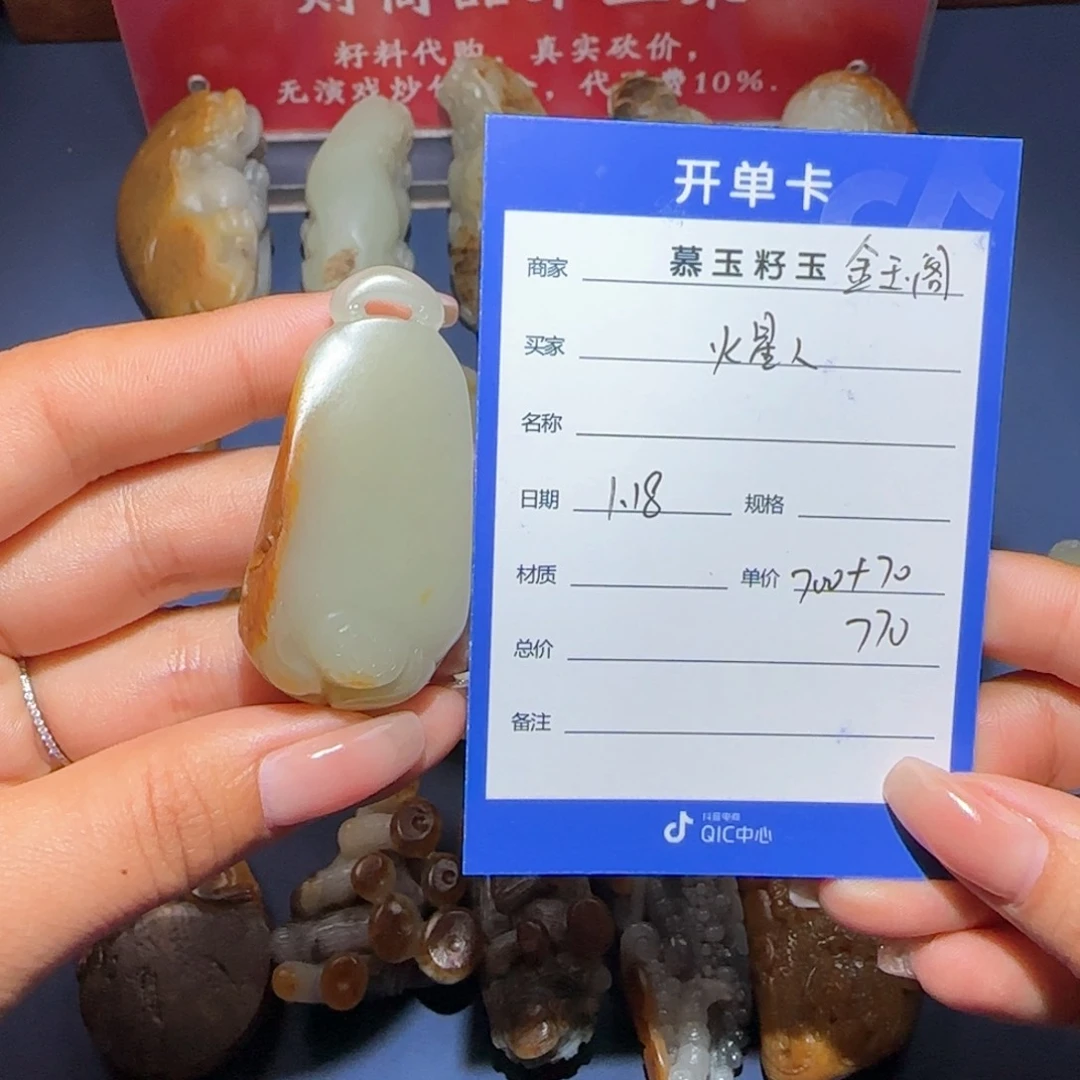 籽料代购，真实砍价，
无演戏炒
费10%.
开单卡
商家 慕玉籽玉 金玉阁
买家 火星人
名称
日期 1.18 规格
材质 单价 700+70
770
总价
备注
抖音电商
QIC中心